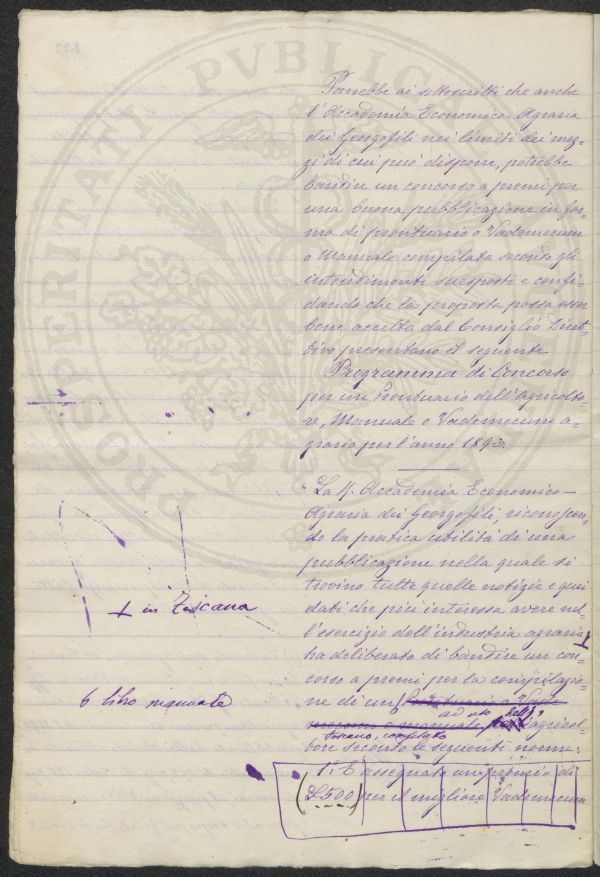 PROSPERITATI PVBLICAE
Parrebbe ai sottoscritti che anche
l'Accademia Economico-Agraria
dei Georgofili nei limiti dei mez-
zi di cui può disporre, potrebbe
bandire un concorso a premi per
una buona pubblicazione in for-
ma di prontuario o Vademecum
o Manuale compilata secondo gli
intendimenti suesposti e confi-
dando che la proposta possa esser
bene accolta dal Consiglio Diret-
tivo presentano il seguente
Programma di Concorso
per un Prontuario dell'agricolto-
re, Manuale o Vademecum a-
grario per l'anno 189
La R. Accademia Economico-
Agraria dei Georgofili, riconoscen-
do la pratica utilità di una
pubblicazione nella quale si
trovino tutte quelle notizie e quei
dati che più interessa avere nel-
l'esercizio dell'industria agraria
+ in Toscana
ha deliberato di bandire un con-
corso a premi per la compilazio-
ne di un Prontuario Vade-
o libro manuale
mecum o manuale ad uso dell'agricol-
toscano, compilato
tore secondo le seguenti norme:
1°. È assegnato un premio di
(£500) per il migliore Vademecum